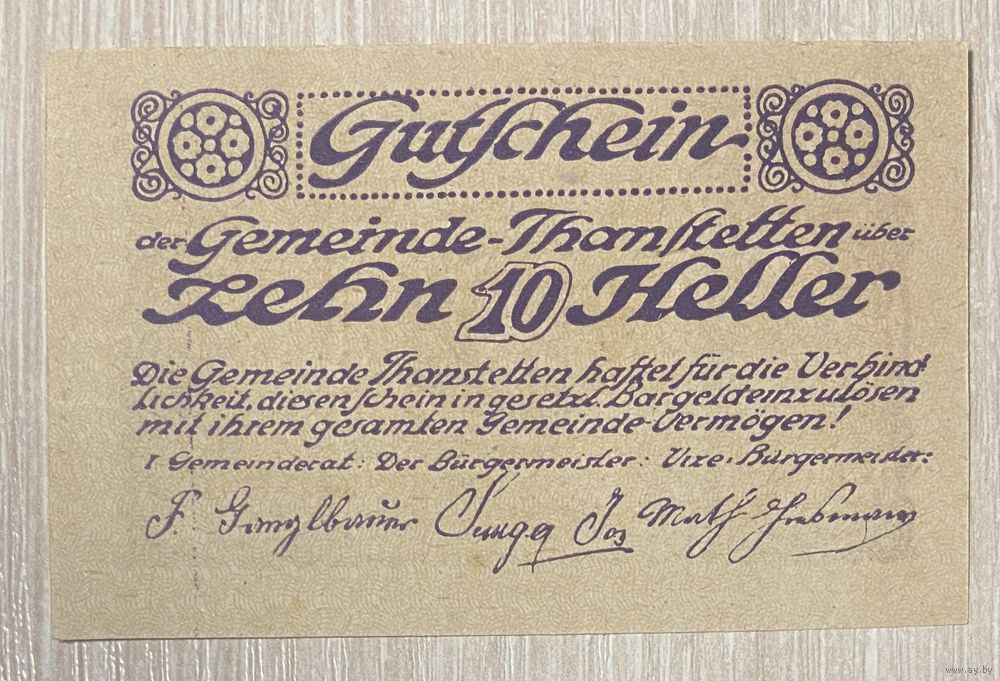 Gutschein
der Gemeinde-Thanstetten über
zehn 10 Heller
Die Gemeinde Thanstetten haftet für die Verbind-
lichkeit, diesen Schein in gesetzl. Bargeld einzulösen
mit ihrem gesamten Gemeinde-Vermögen!
I. Gemeinderat: Der Bürgermeister: Vize-Bürgermeister:
F. Ganglbauer Jos Math
www.ay.by